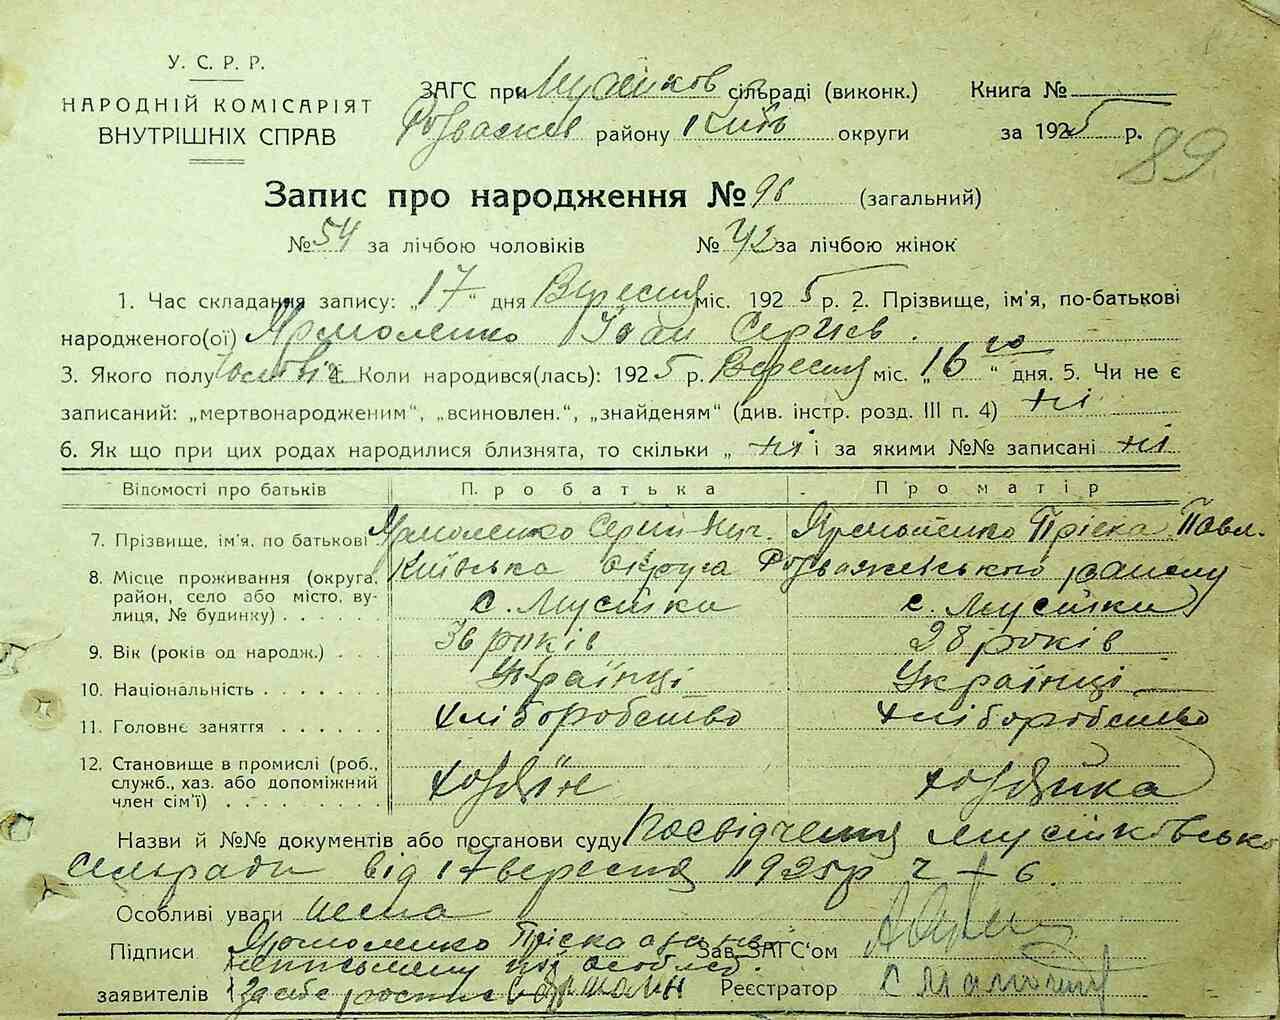 У. С. Р. Р.
НАРОДНІЙ КОМІСАРІЯТ
ВНУТРІШНІХ СПРАВ
ЗАГС при Мусійков сільраді (виконк.) Книга №
Розважев району Київ округи за 1925 р.
89
Запис про народження № 96 (загальний)
№ 54 за лічбою чоловіків № 42 за лічбою жінок
1. Час складання запису: „17“ дня Вересня міс. 1925 р. 2. Прізвище, ім’я, по-батькові
народженого(ої) Ярмоленко Іван Сергієв.
3. Якого полу 4. Коли народився(лась): 1925 р. Вересня міс. „16го“ дня. 5. Чи не є
записаний: „мертвонародженим“, „всиновлен.“, „знайденям“ (див. інстр. розд. III п. 4) ні
6. Як що при цих родах народилися близнята, то скільки „ ні і за якими №№ записані ні
Відомості про батьків Про батька Про матір
7. Прізвище, ім’я, по батькові Ярмоленко Сергій Ярмоленко Пріска Павл.
8. Місце проживання (округа, Київська округа Розважевського району
район, село або місто, ву- с. Мусійки с. Мусійки
лиця, № будинку)
9. Вік (років од народж.) 36 років 28 років
10. Національність Українці Українці
11. Головне заняття хліборобство хліборобство
12. Становище в промислі (роб.,
служб., хаз. або допоміжний хозяїн хозяйка
член сім’ї)
Назви й №№ документів або постанови суду Посвідчення Мусійковсько
Сільради від 17 вересня 1925р ч 6
Особливі уваги нема
Підписи Ярмоленко Пріска а за не Зав. ЗАГС’ом
письмену
заявителів Реєстратор